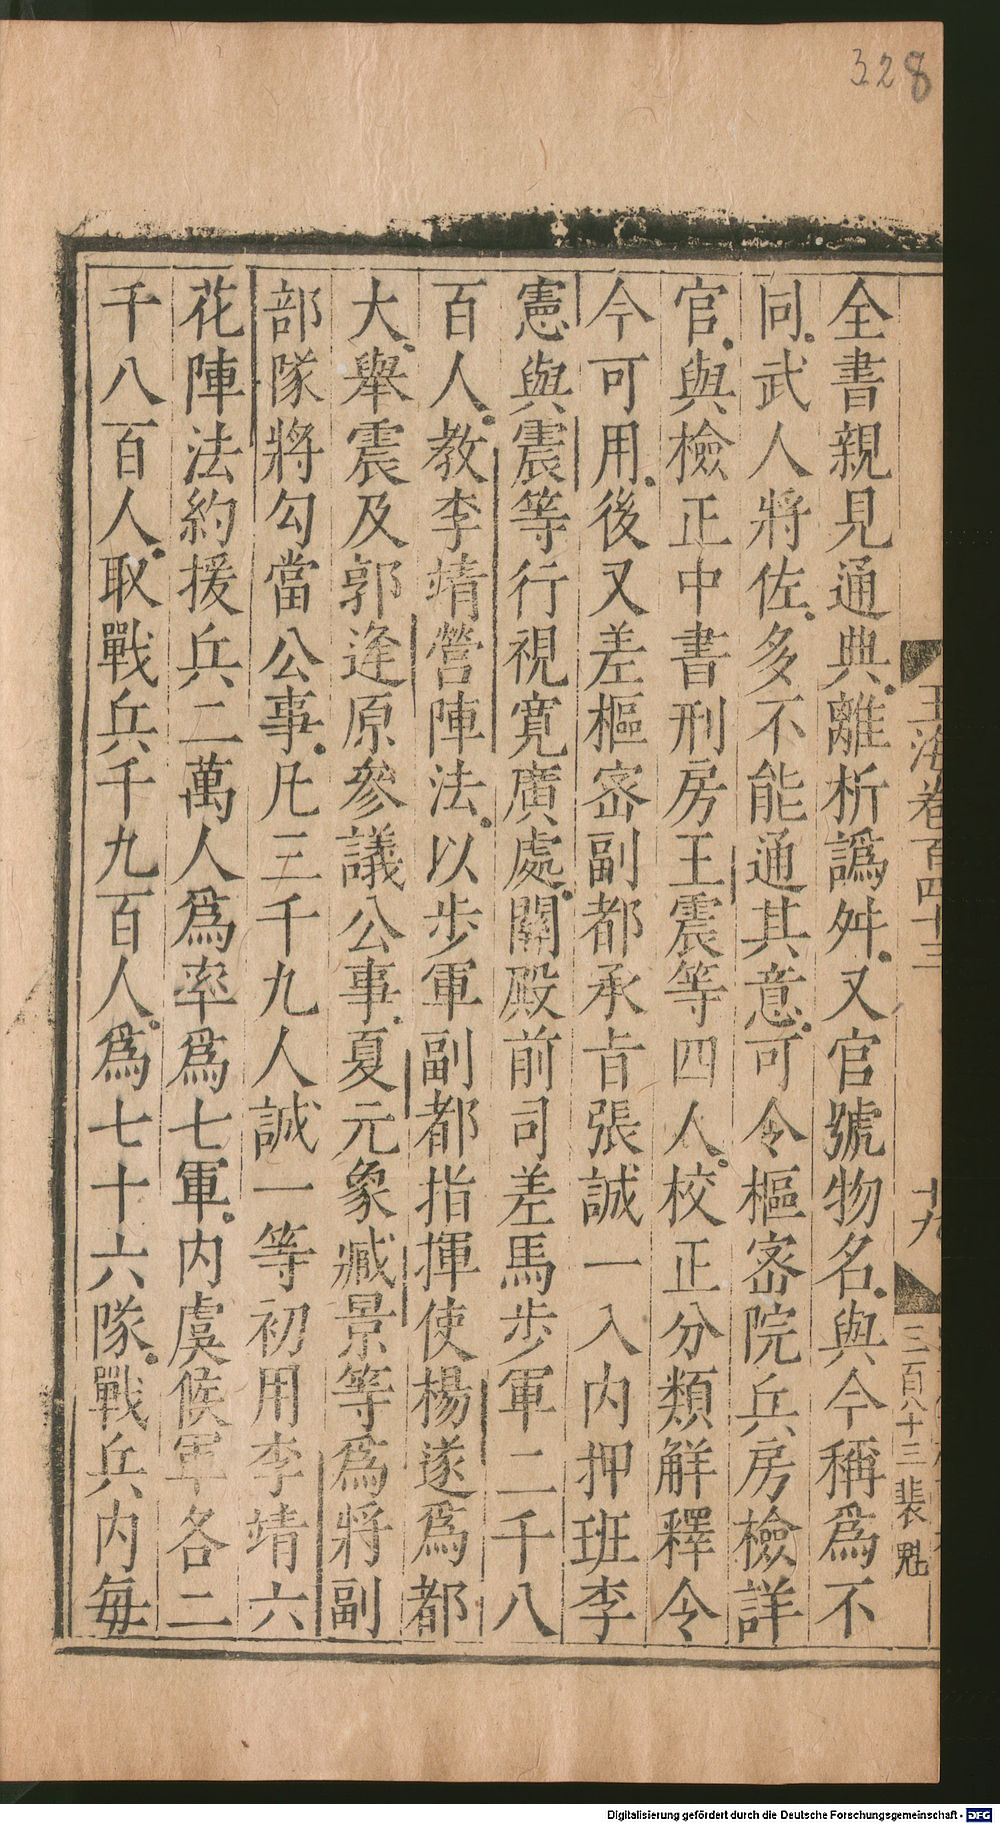 328
玉海卷百四十三
十九
三百八十三
全書親見通典離析譌舛又官號物名與今稱爲不
同武人將佐多不能通其意可令樞宻院兵房檢詳
官與檢正中書刑房王震等四人校正分類解釋令
今可用後又差樞宻副都承㫖張誠一入内押班李
憲與震等行視寛廣處關殿前司差馬步軍二千八
百人教李靖營陣法以步軍副都指揮使楊遂爲都
大舉震及郭逢原參議公事夏元象臧景等爲將副
部隊將勾當公事凡三千九人誠一等初用李靖六
花陣法約援兵二萬人爲率爲七軍内虞候軍各二
千八百人取戰兵千九百人爲七十六隊戰兵内每
Digitalisierung gefördert durch die Deutsche Forschungsgemeinschaft - DFG